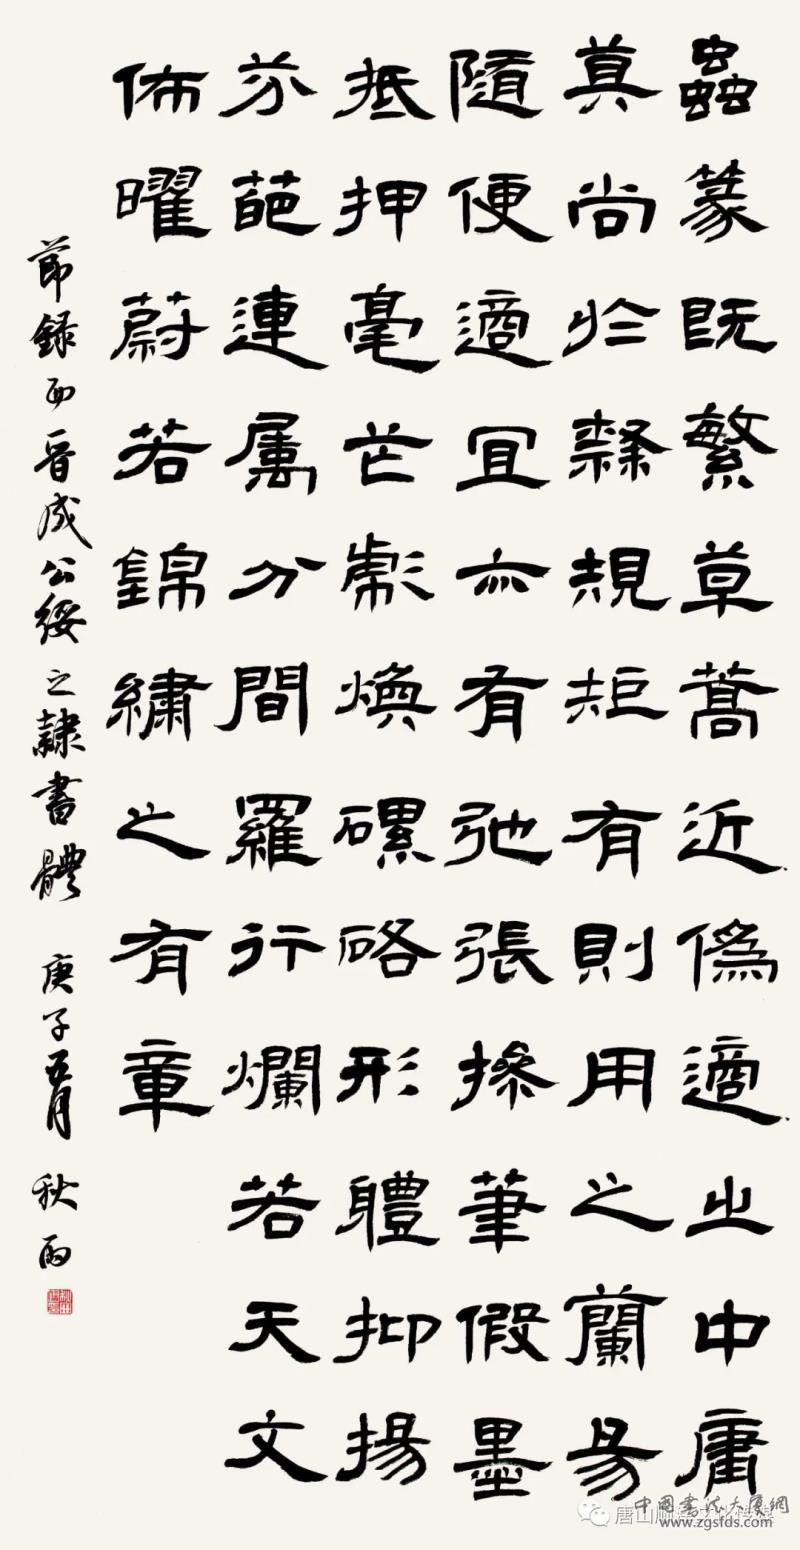 蟲篆既繁草蒿近偽適之中庸
莫尚於隸規矩有則用之蘭易
隨便適宜亦有弛張操筆假墨
抵押毫芒彪煥磥硌形體抑揚
芬葩連屬分間羅行爛若天文
佈曜蔚若錦繡之有章
節録西晉成公綏之隸書體 庚子五月 秋雨
中國書法大厦網
唐山文化传媒
www.zgsfds.com